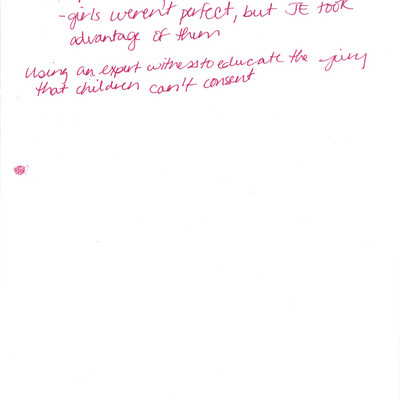 -girls weren't perfect, but JE took
advantage of them
Using an expert witness to educate the jury
that children can't consent